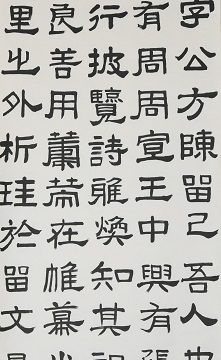 字公方陳留己吾人也
有周周宣王中興有張
行披覽詩雅煥知其祖
良善用籌策在帷幕之
里之外析珪於留文景